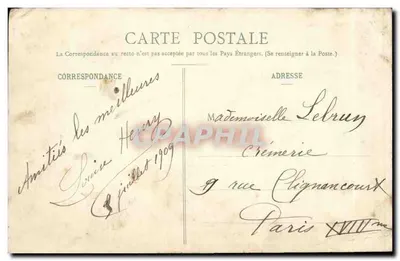 CARTE POSTALE
La Correspondance au verso n'est pas acceptée par tous les Pays Étrangers. (Se renseigner à la Poste.)
CORRESPONDANCE
ADRESSE
Amitiés les meilleures
Louise Henry
8 juillet 1909
Mademoiselle Lebrun
Crémerie
9 rue Clignancourt
Paris XVIIIme
CRAPHIL